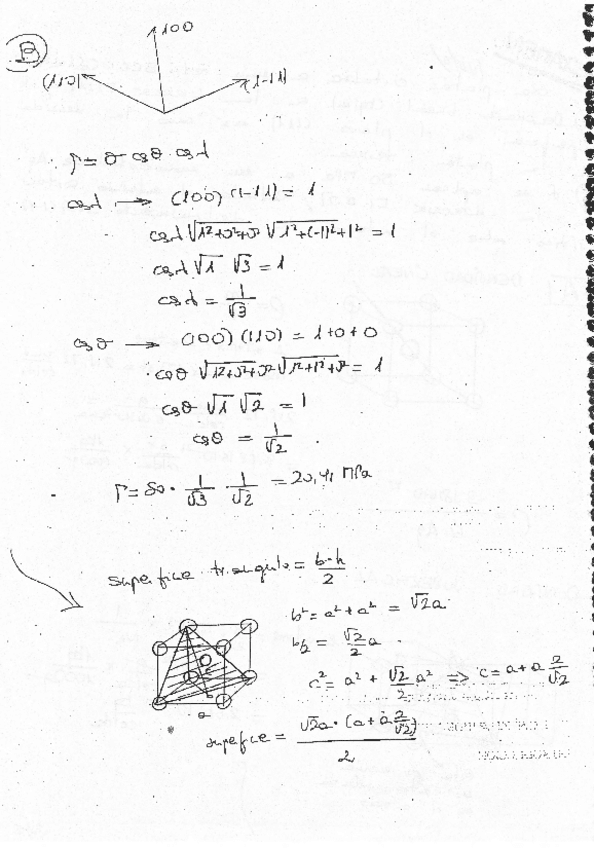 B
100
(110)
(1-11)
τ = σ cosθ cosλ
cosλ → (100) (1-11) = 1
cosλ √1²+0²+0² √1²+(-1)²+1² = 1
cosλ √1 √3 = 1
cosλ = 1/√3
cosθ → (100) (110) = 1+0+0
cosθ √1²+0²+0² √1²+1²+0² = 1
cosθ √1 √2 = 1
cosθ = 1/√2
τ = 50 · 1/√3 · 1/√2 = 20,41 MPa
superficie triangulo = b·h/2
b² = a² + a² = √2a
b/2 = √2/2 a
c² = a² + √2/2 a² => c = a + a 2/√2
a
superficie = √2a · (a + a 2/√2)/2